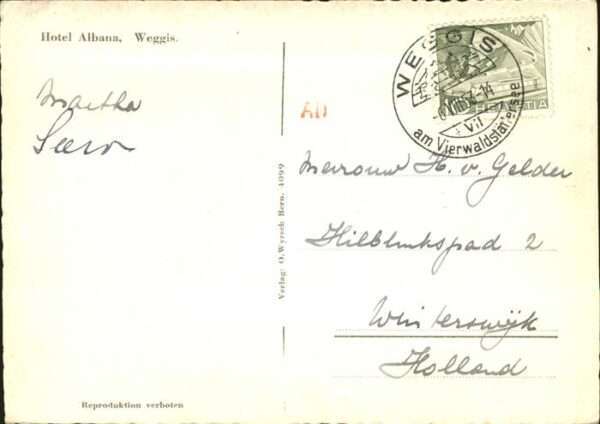 Hotel Albana, Weggis.
Martha
AD
WEGGIS
am Vierwaldstättersee
HELVETIA
Mevrouw H. v. Gelder
Hilblinkspad 2
Winterswijk
Holland
Verlag: O. Wyrsch Bern. 4099
Reproduktion verboten